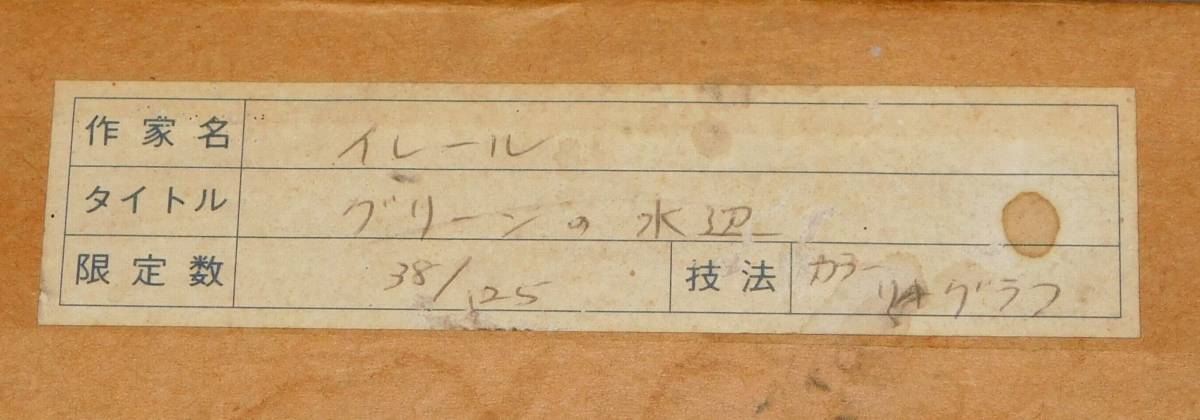 作家名 イレール
タイトル グリーンの水辺
限定数 38/125 技法 カラー
リトグラフ